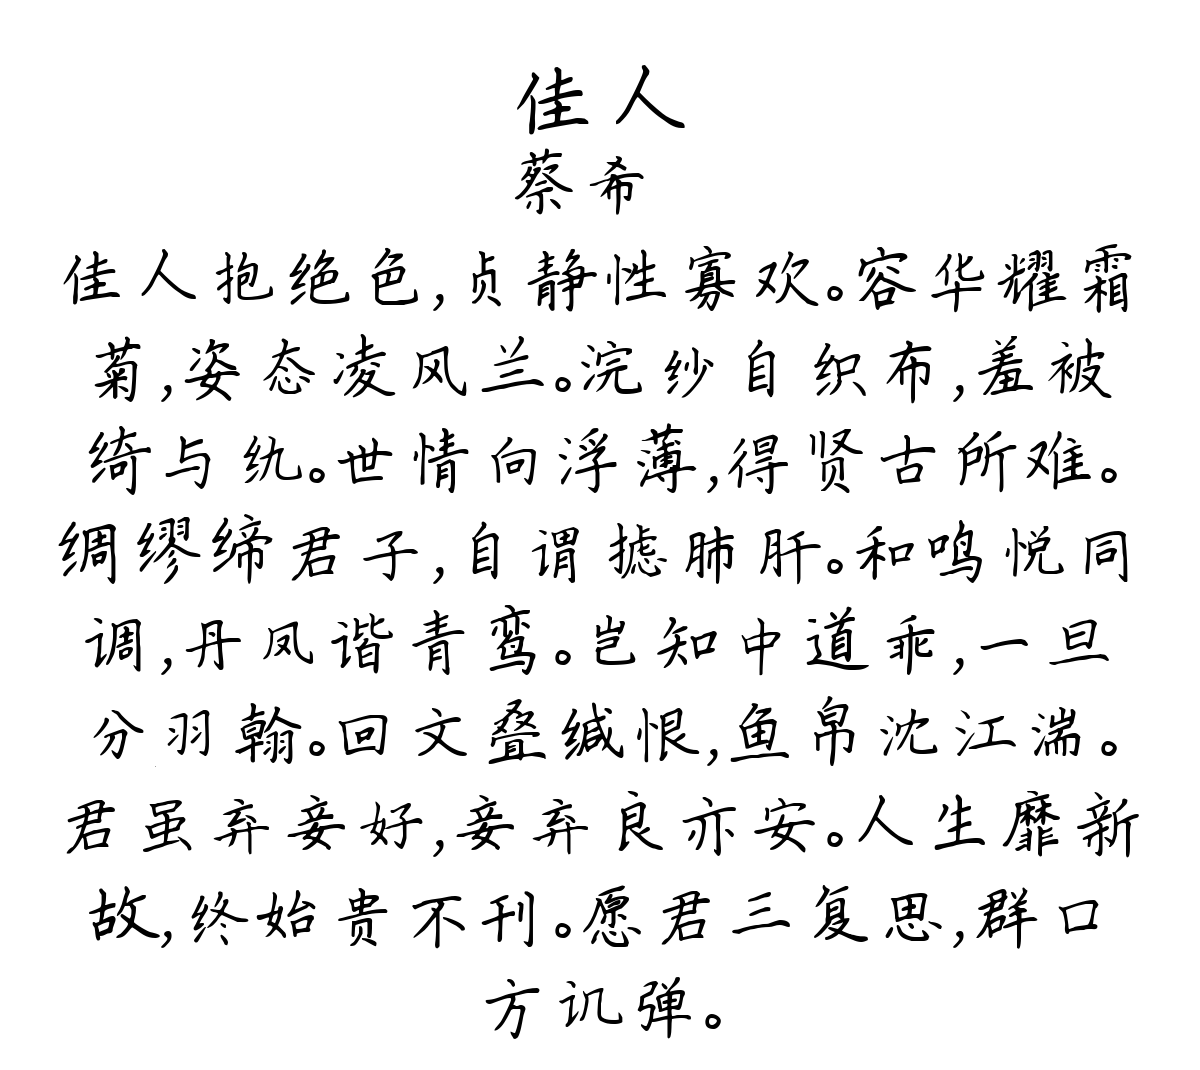 佳人
蔡希
佳人抱绝色,贞静性寡欢。容华耀霜
菊,姿态凌风兰。浣纱自织布,羞被
绮与纨。世情向浮薄,得贤古所难。
绸缪缔君子,自谓摅肺肝。和鸣悦同
调,丹凤谐青鸾。岂知中道乖,一旦
分羽翰。回文叠缄恨,鱼帛沈江湍。
君虽弃妾好,妾弃良亦安。人生靡新
故,终始贵不刊。愿君三复思,群口
方讥弹。